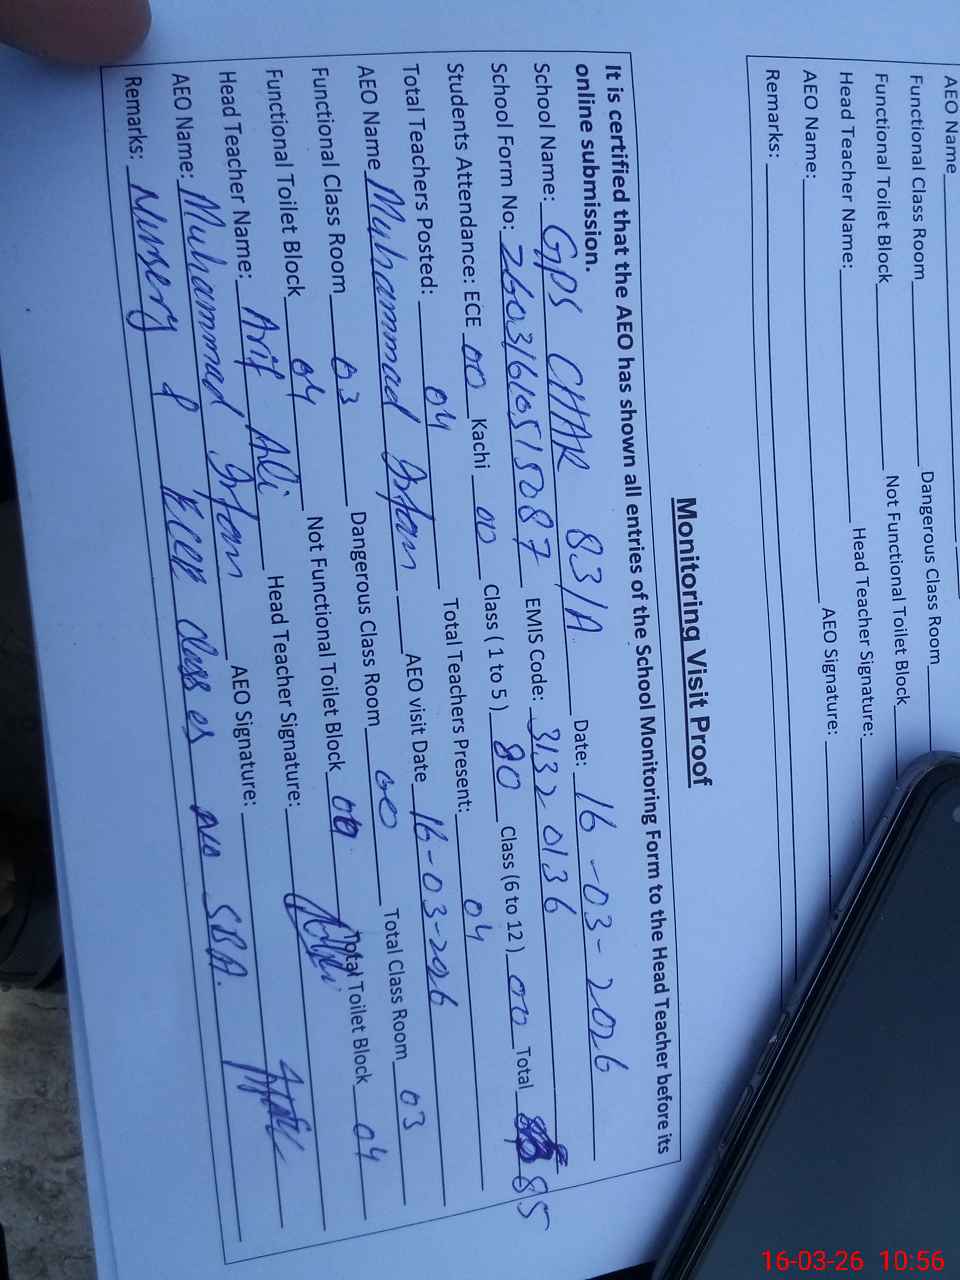 AEO Name
Functional Class Room Dangerous Class Room
Functional Toilet Block Not Functional Toilet Block
Head Teacher Name: Head Teacher Signature:
AEO Name: AEO Signature:
Remarks:
Monitoring Visit Proof
It is certified that the AEO has shown all entries of the School Monitoring Form to the Head Teacher before its
online submission.
School Name: GPS CHAK 83/A Date: 16-03-2026
School Form No: 26031610515087 EMIS Code: 31320136
Students Attendance: ECE 00 Kachi 00 Class ( 1 to 5 ) 80 Class (6 to 12 ) 00 Total 85
Total Teachers Posted: 04 Total Teachers Present: 04
AEO Name Muhammad AEO visit Date 16-03-2026
Functional Class Room 03 Dangerous Class Room 00 Total Class Room 03
Functional Toilet Block 04 Not Functional Toilet Block 00 Total Toilet Block 04
Head Teacher Name: Arif Ali Head Teacher Signature:
AEO Name: Muhammad AEO Signature:
Remarks: Nursery & classes no SBA.
16-03-26 10:56